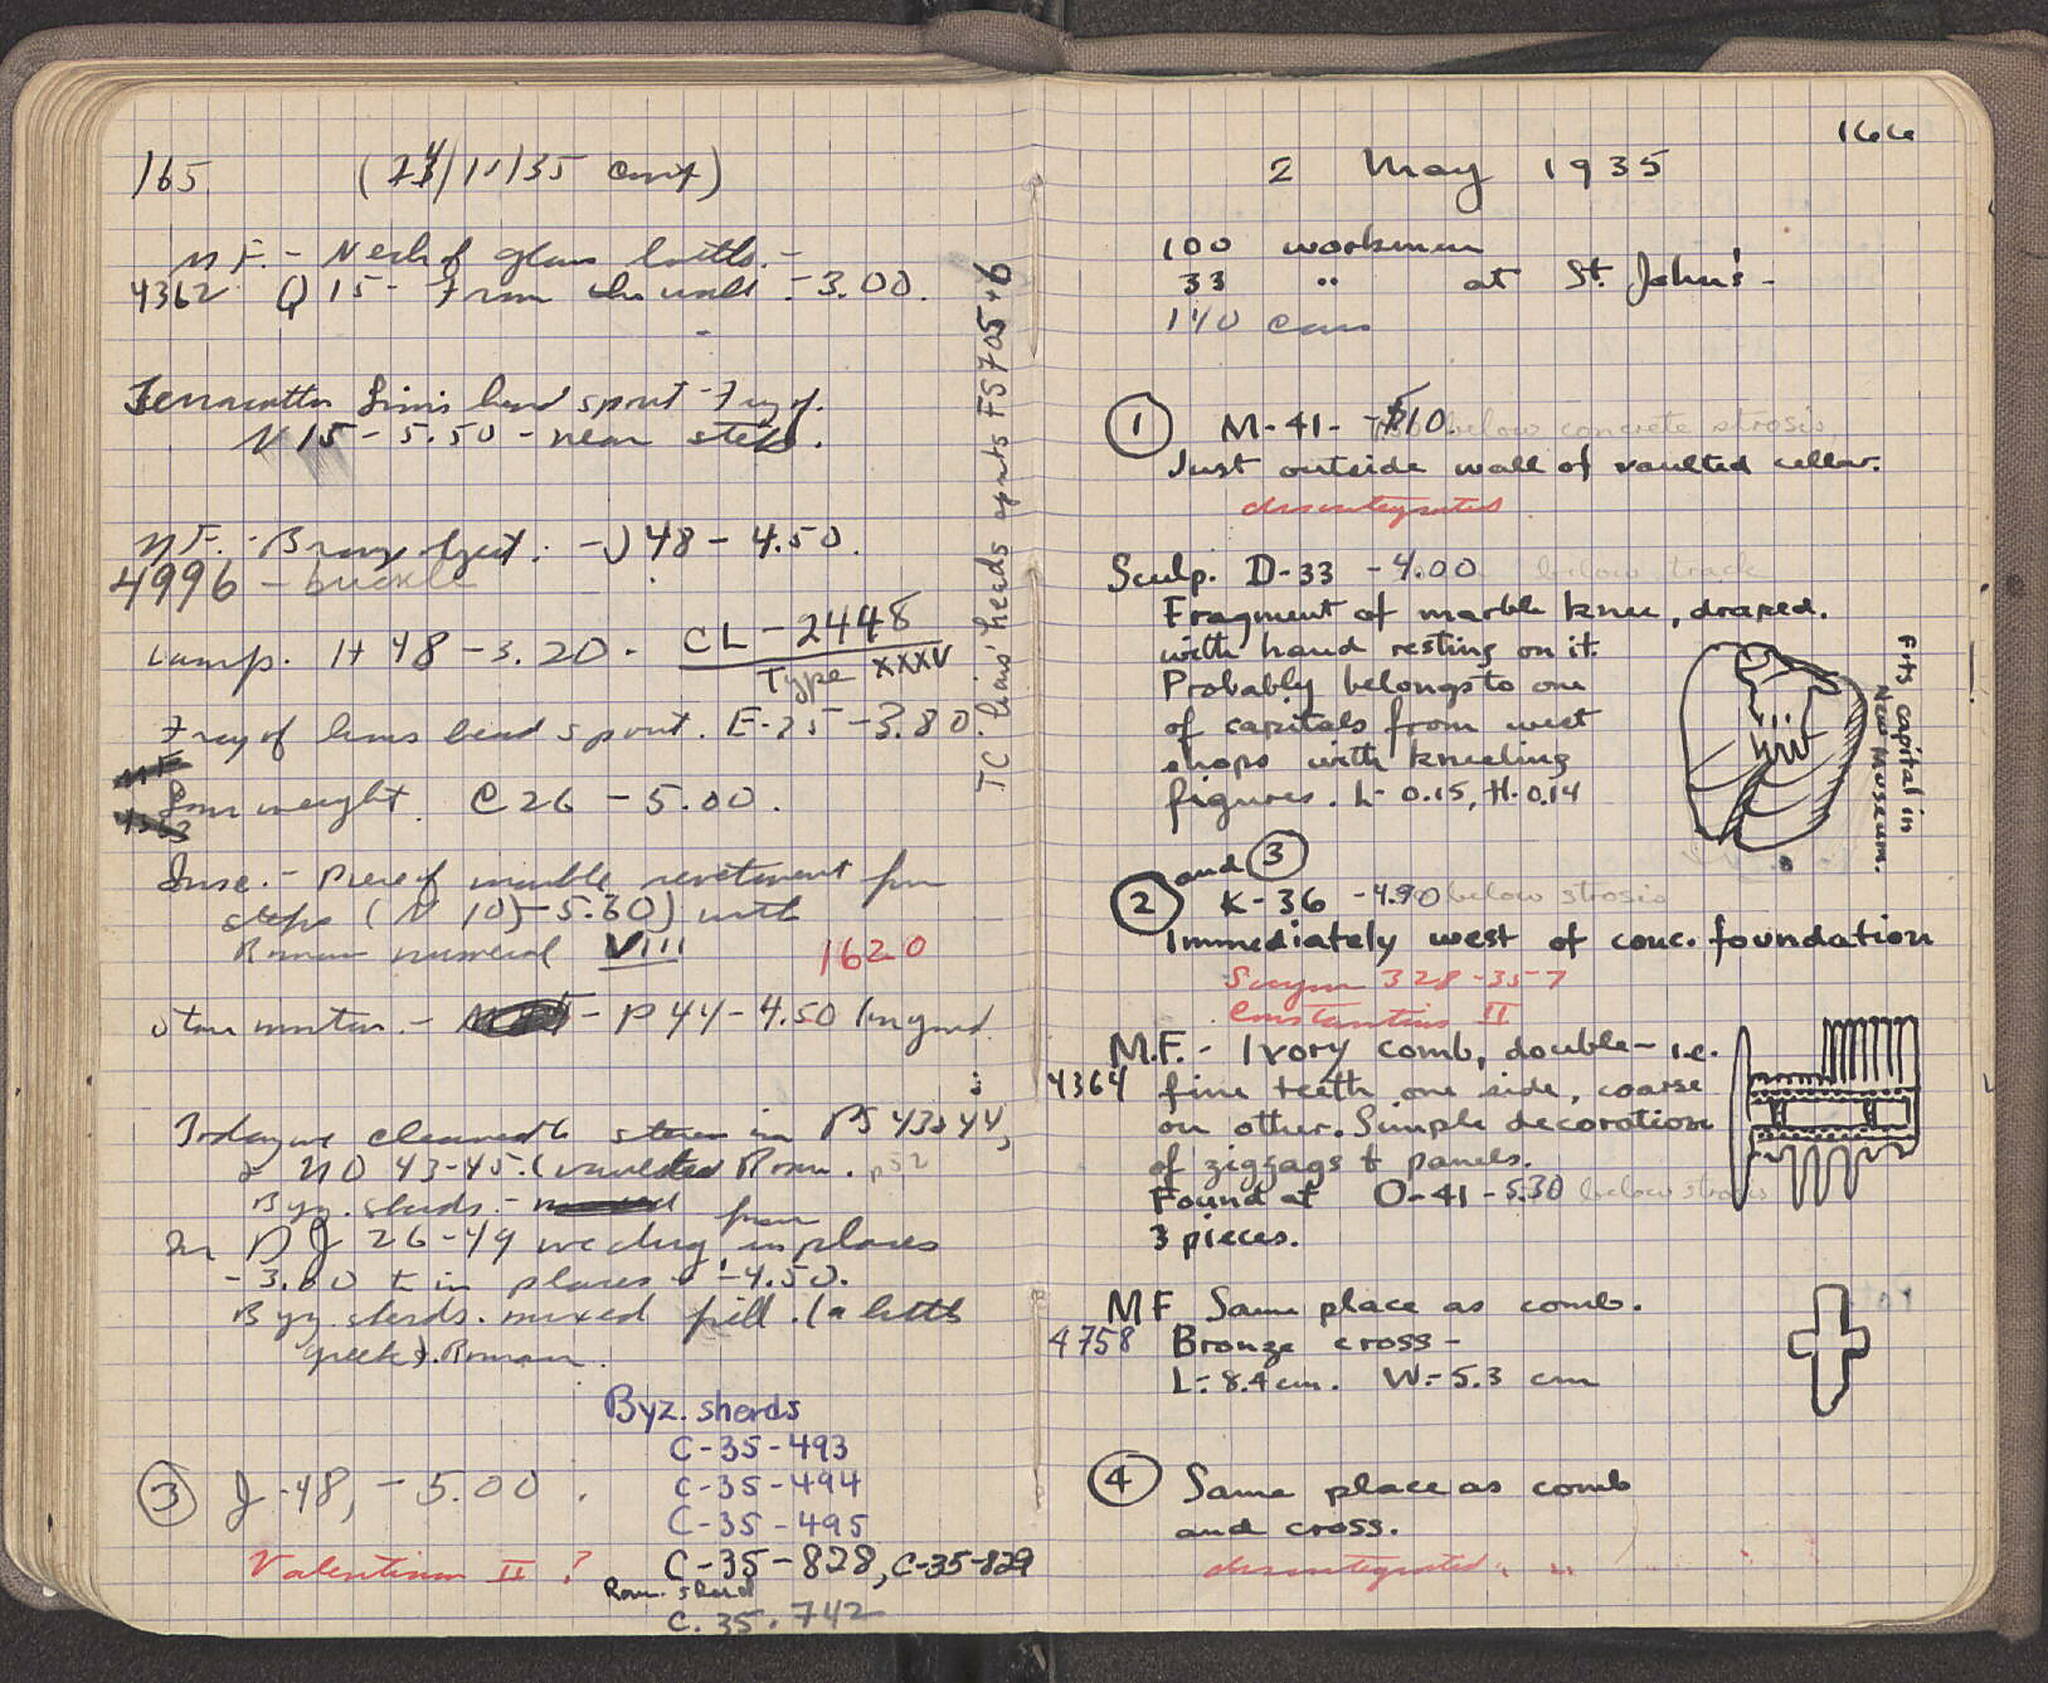 165
M F. - Neck of glass bottle. -
4362 Q 15 - From the well - 3.00.
Terracotta Lion's head spout - Frag of.
N 15 - 5.50 - near steps.
M F. - Bronze : - J 48 - 4.50.
4996 - buckle
Lamp. H 48 - 3.20 - CL - 2448
Type XXXV
Frag of lions head spout. E-25 - 3.80.
Loom weight. C 26 - 5.00.
Insc. - Piece of marble revetment from
steps (N 10) - 5.30) with
Roman numeral VIII 1620
Stone mortar. - - P 44 - 4.50 in yard
Today we cleaned stereo in 43 & 44,
& N O 43-45. (vaulted Room. p 52
Byz. sherds. -
In D J 26-49 we dug, from in places
- 3.00 to in places - 4.50.
Byz. sherds. mixed fill. (a little
greek). Roman.
Byz. sherds
C-35-493
C-35-494
C-35-495
C-35-828, C-35-829
Rom. sherd
C. 35. 742
③ J-48, - 5.00.
Valentinian II ?
TC lions' heads spouts FS 705 + 6
166
2 May 1935
100 workmen
33 " at St. John's -
140 cars
① M-41- -$10. below concrete strosis.
Just outside wall of vaulted cellar.
disintegrated
Sculp. D-33 - 4.00 below track
Fragment of marble knee, draped.
with hand resting on it.
Probably belongs to one
of capitals from west
shops with kneeling
figures. L- 0.15, H. 0.14
Fits capital in
New Museum.
and ③
② K-36 -4.90 below strosis
Immediately west of conc. foundation
328-357
Constantius II
M.F. - Ivory comb, double - i.e.
4364 fine teeth one side, coarse
on other. Simple decoration
of zigzags & panels.
Found at O-41 - 5.30 below strosis
3 pieces.
MF Same place as comb.
4758 Bronze cross -
L = 8.4 cm. W = 5.3 cm
④ Same place as comb
and cross.
disintegrated